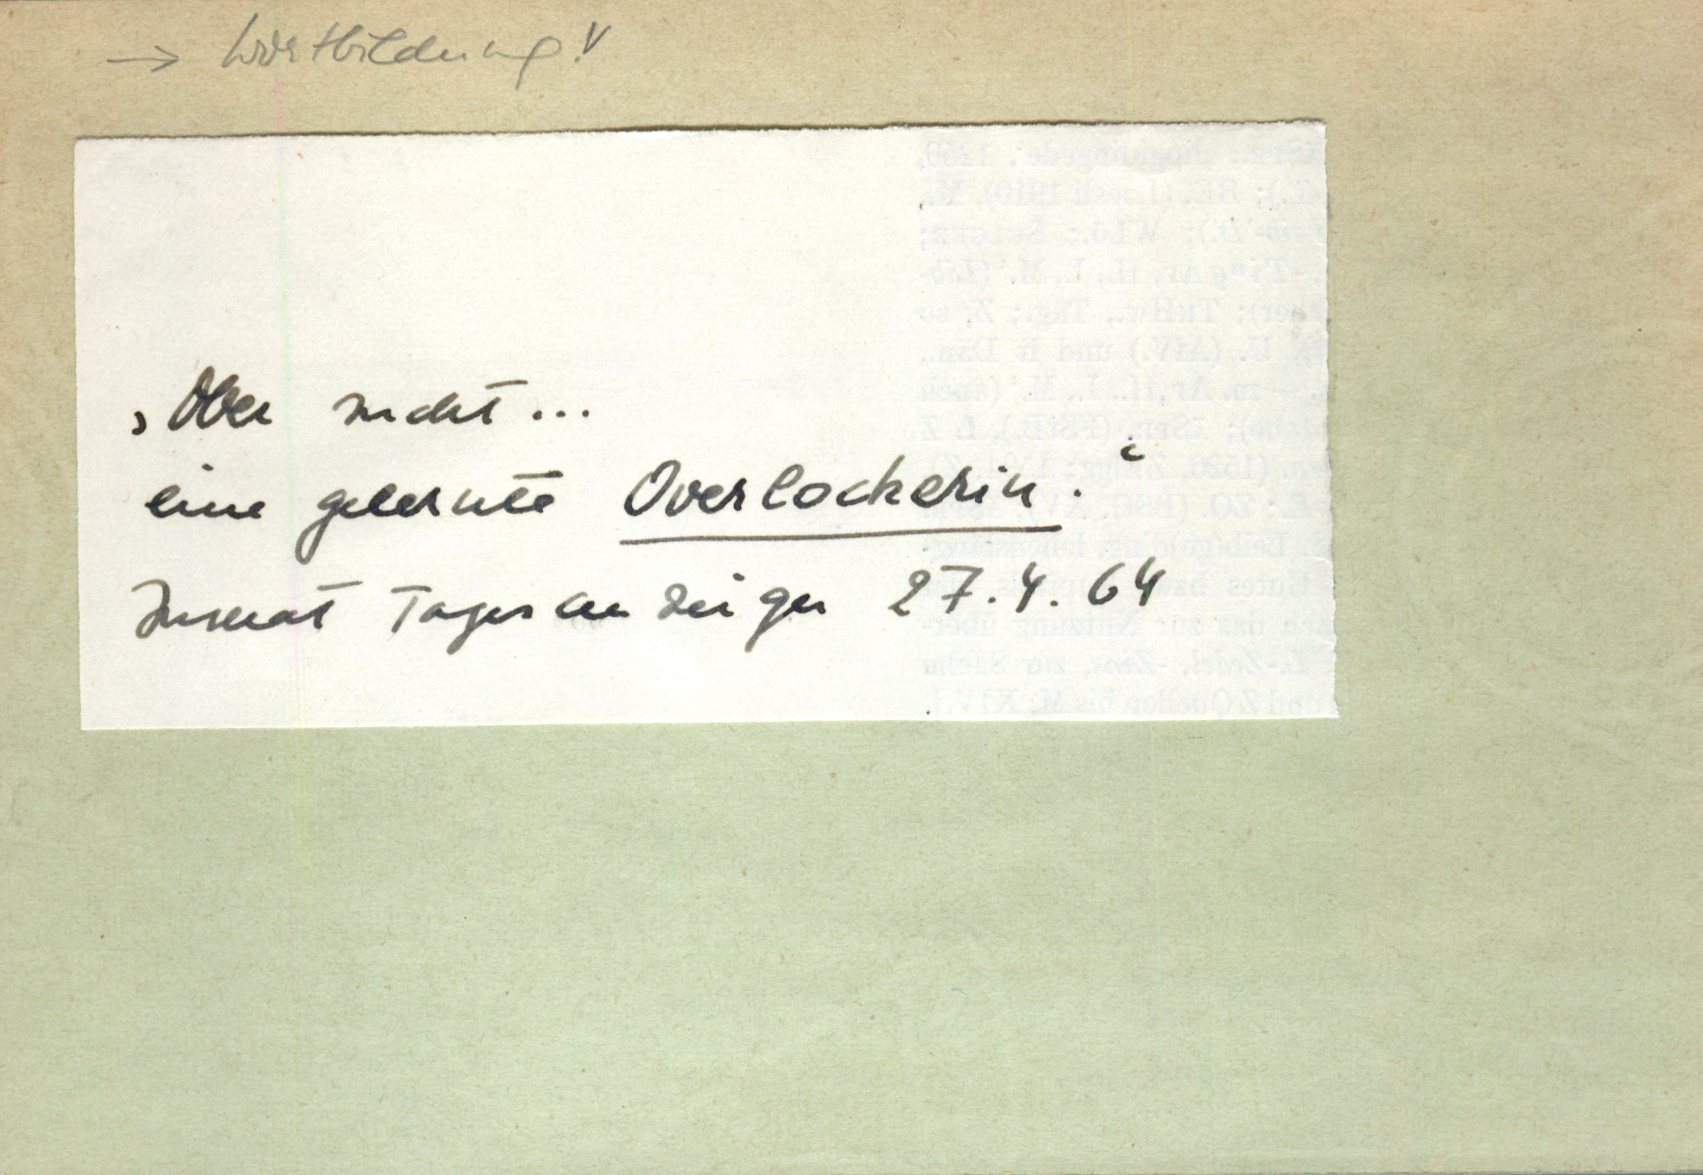 → Wortbildung!
sucht ...
eine gelernte Overlockerin.‘
Inserat Tagesanzeiger 27.4.64